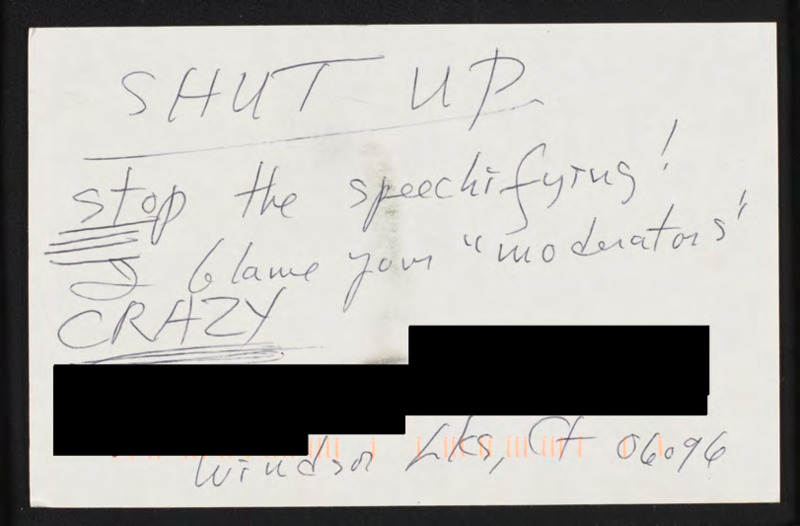 SHUT UP
stop the speechifying!
I blame your "moderators"
CRAZY
Windsor Lks, Ct 06096